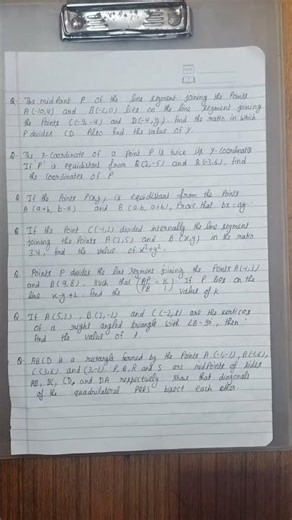 Q The midpoint P of the line segment joining the Points
A(-10,4) and B(-2,0) lies on the line segment joining
the Points C(-9,-4) and D(-4,y). Find the ratio in which
P divides CD. Also find the value of y.
Q The x-coordinate of a point P is twice its y-coordinate
If P is equidistant from Q(2,-5) and R(-3,6), find
the coordinates of P
Q If the Point P(x,y) is equidistant from the Points
A(a+b, b-a) and B(a-b, a+b), Prove that bx=ay.
Q If the Point C(-1,2) divides internally the line segment
joining the Points A(2,5) and B(x,y) in the ratio
3:4, find the value of x²+y².
Q Point P divides the line segment joining the Points A(-1,3)
and B(9,8), such that AP/PB = k/1 If P lies on the
line x-y+2 find the value of k
Q If A(5,2), B(2,-2) and C(-2,t) are the vertices
of a right angled triangle with ∠B=90, then
find the value of t.
Q ABCD is a rectangle formed by the Points A(-1,-1), B(-1,6),
C(3,6) and (3,-1). P, Q, R and S are midpoints of sides
AB, BC, CD, and DA respectively show that diagonals
of the quadrilateral PQRS bisect each other.